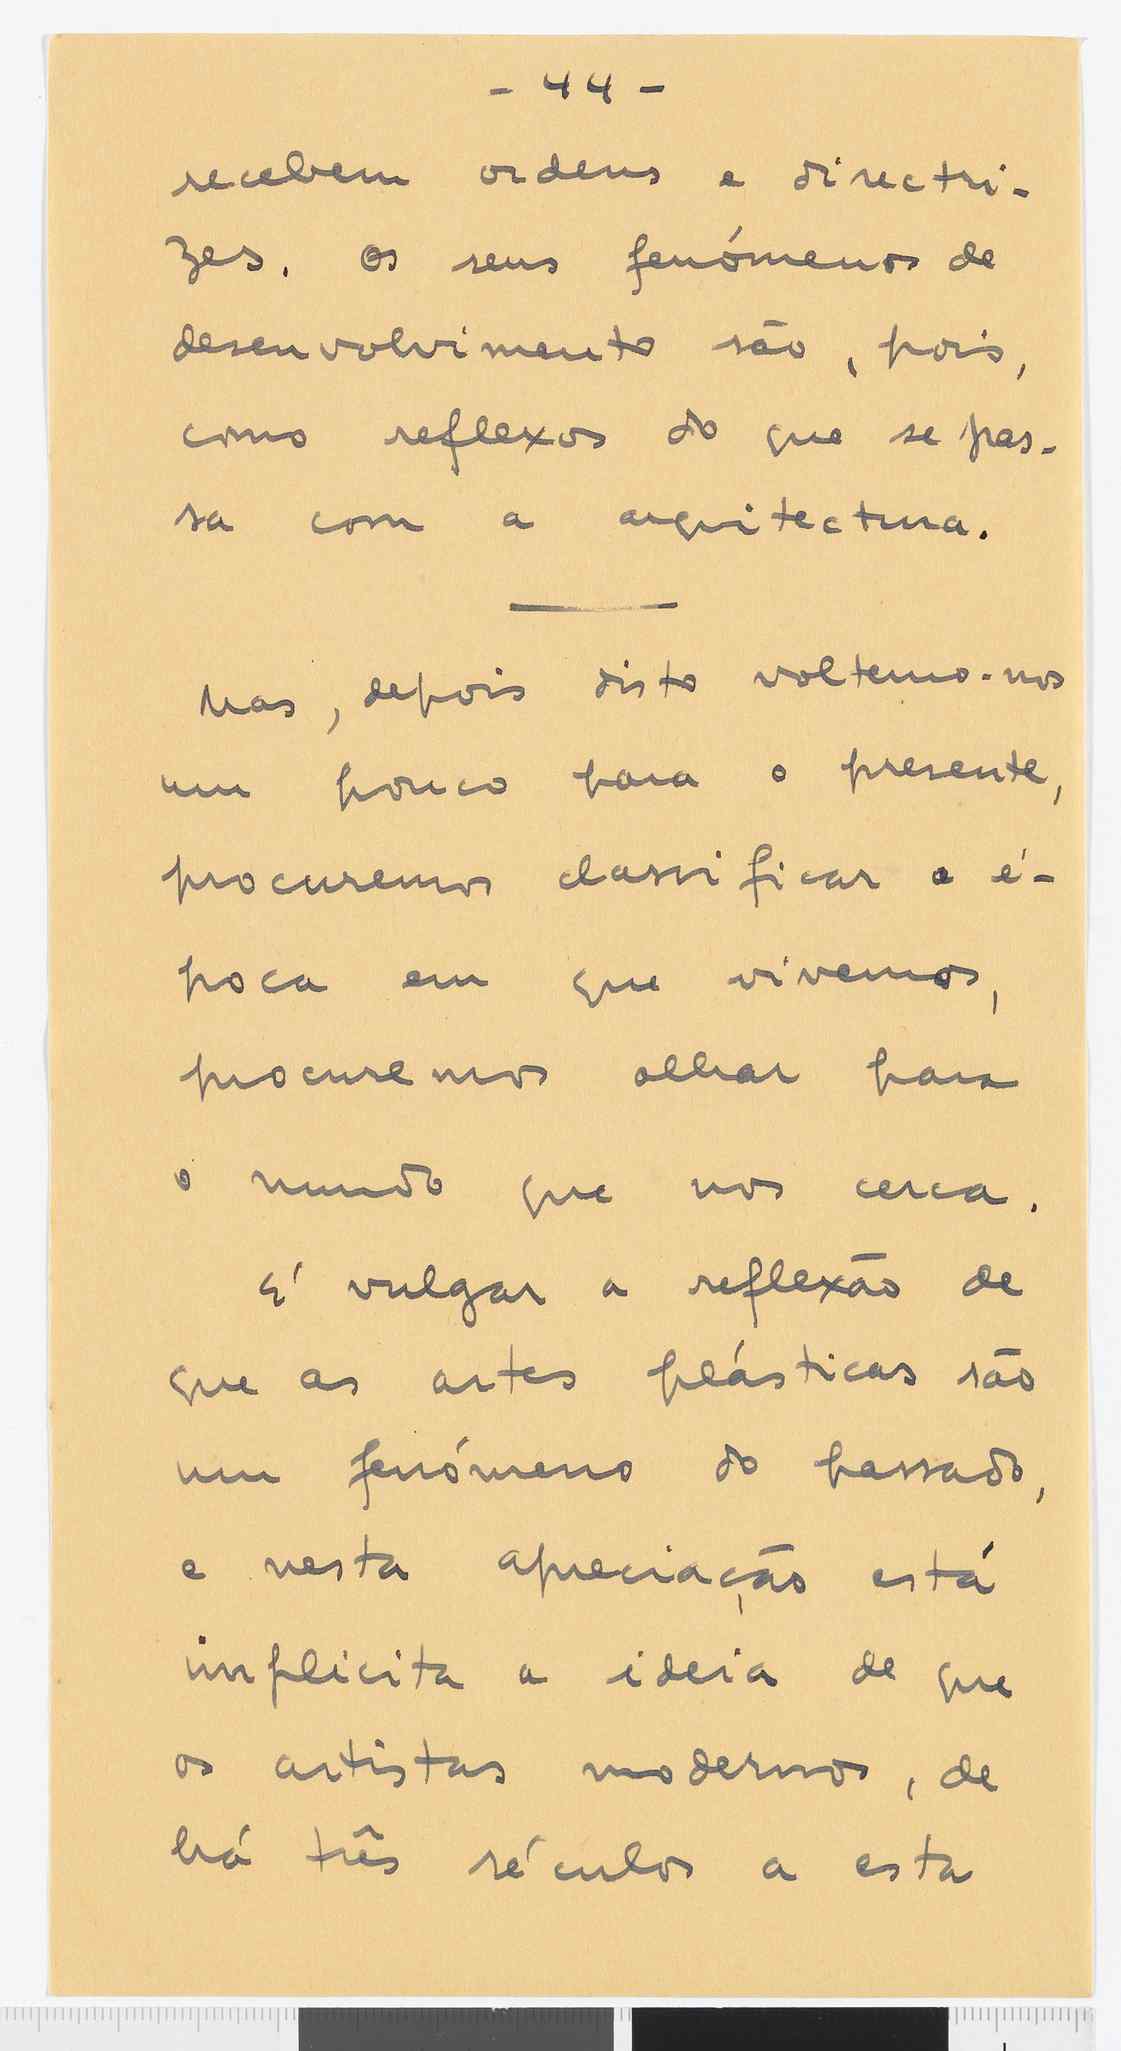 - 44 -
recebem ordens e directri-
zes. Os seus fenómenos de
desenvolvimento são, pois,
como reflexos do que se pas-
sa com a arquitectura.
Mas, depois disto voltemo-nos
um pouco para o presente,
procuremos classificar a é-
poca em que vivemos,
procuremos olhar para
o mundo que nos cerca.
É vulgar a reflexão de
que as artes plásticas são
um fenómeno do passado,
e nesta apreciação está
implicita a ideia de que
os artistas modernos, de
há três séculos a esta